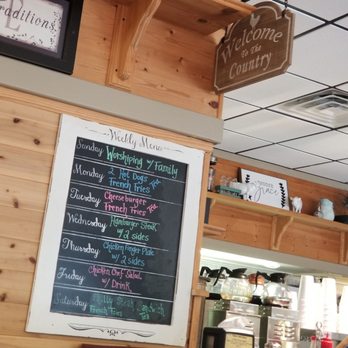 Traditions
Welcome
To The
Country
Weekly Menu
Sunday Worshiping w/ Family
Monday 2 Hot Dogs
French Fries
Tuesday Cheeseburger
French Fries
Wednesday Hamburger Steak
w/ 2 sides
Thursday Chicken Finger Plate
w/ 2 sides
Friday Chicken Chef Salad
w/ Drink
Saturday Philly Steak
grace